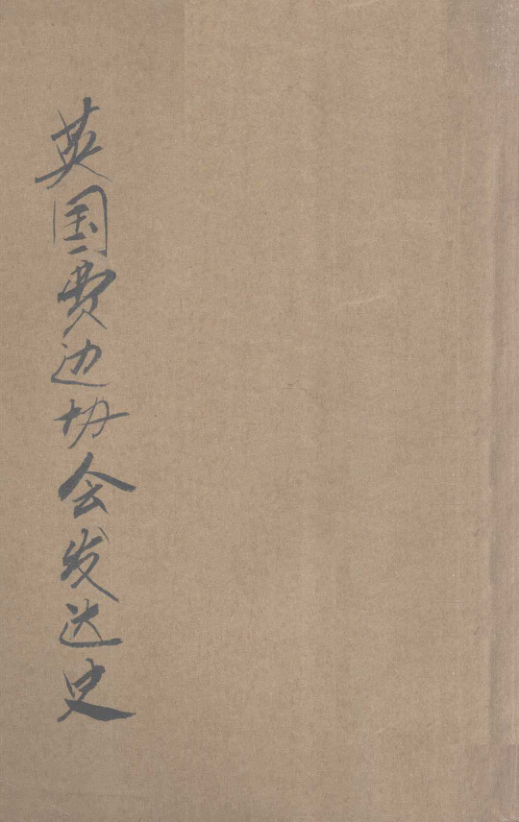 英国费边协会发达史